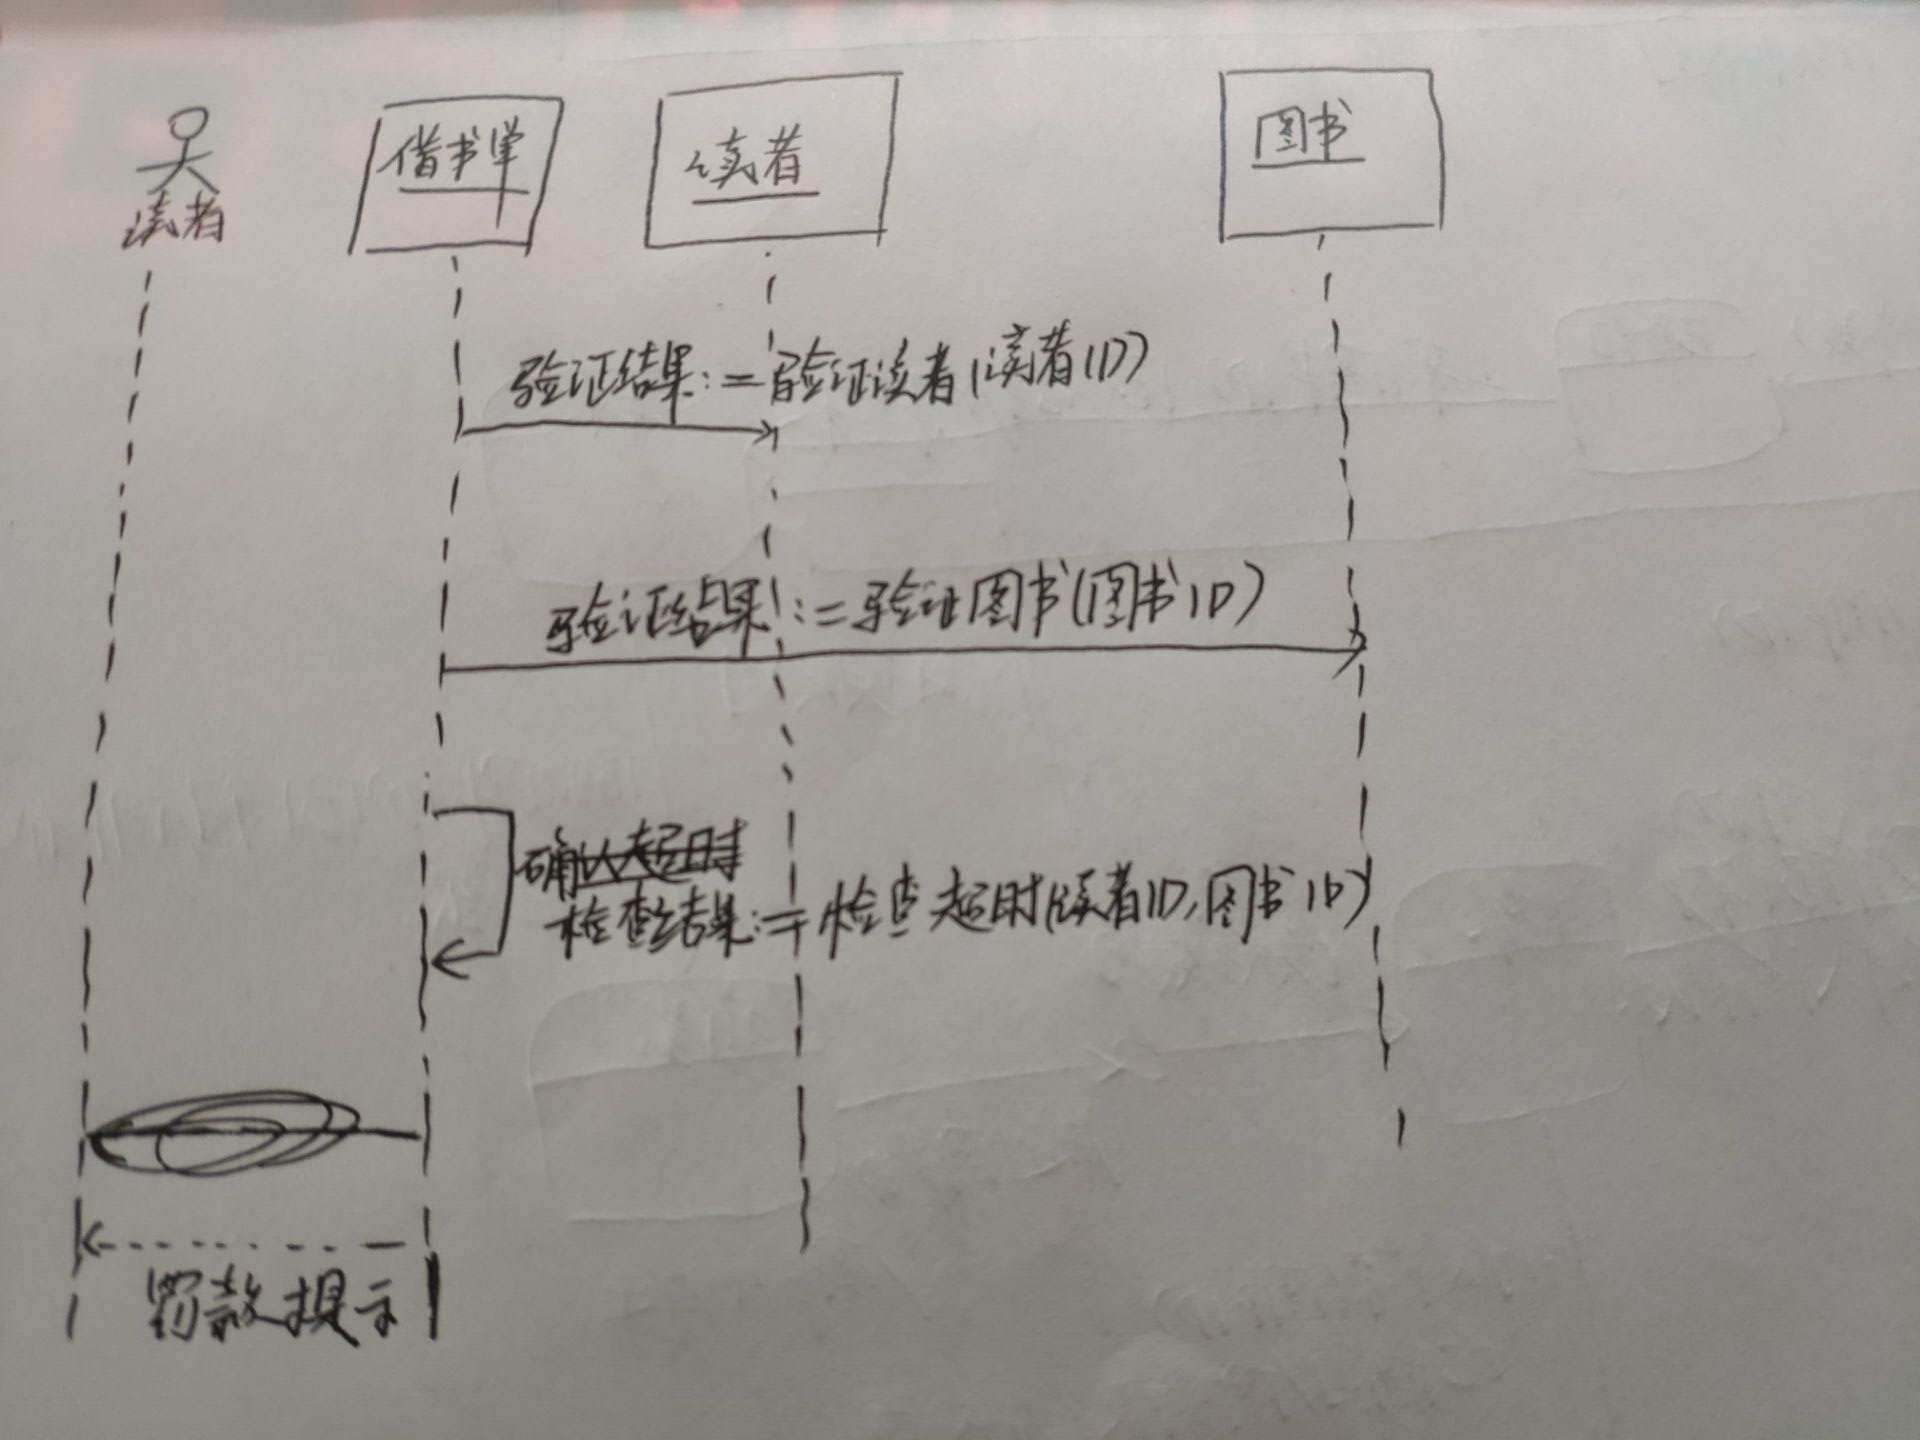 读者
借书单
读者
图书
验证结果:=验证读者(读者ID)
验证结果:=验证图书(图书ID)
确认超时
检查结果:=检查超时(读者ID,图书ID)
罚款提示